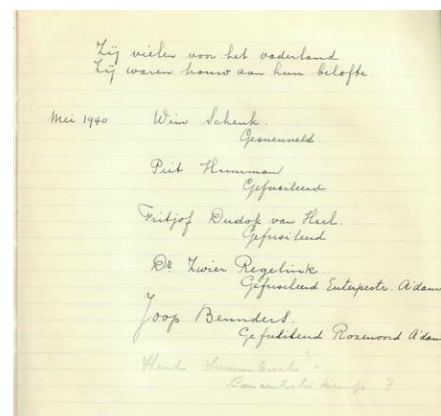 Zij vielen voor het vaderland
Zij waren trouw aan hun belofte
Mei 1940 Wim Schenk.
Piet
Gefusileerd
Fritjof Dudok van Heel.
Gefusileerd
Dr. Zwier Regelink.
Gefusileerd Euterpestr. A'dam
Joop Beunders.
Gefusileerd Rozenoord A'dam
Henk
Concentratie kamp ?